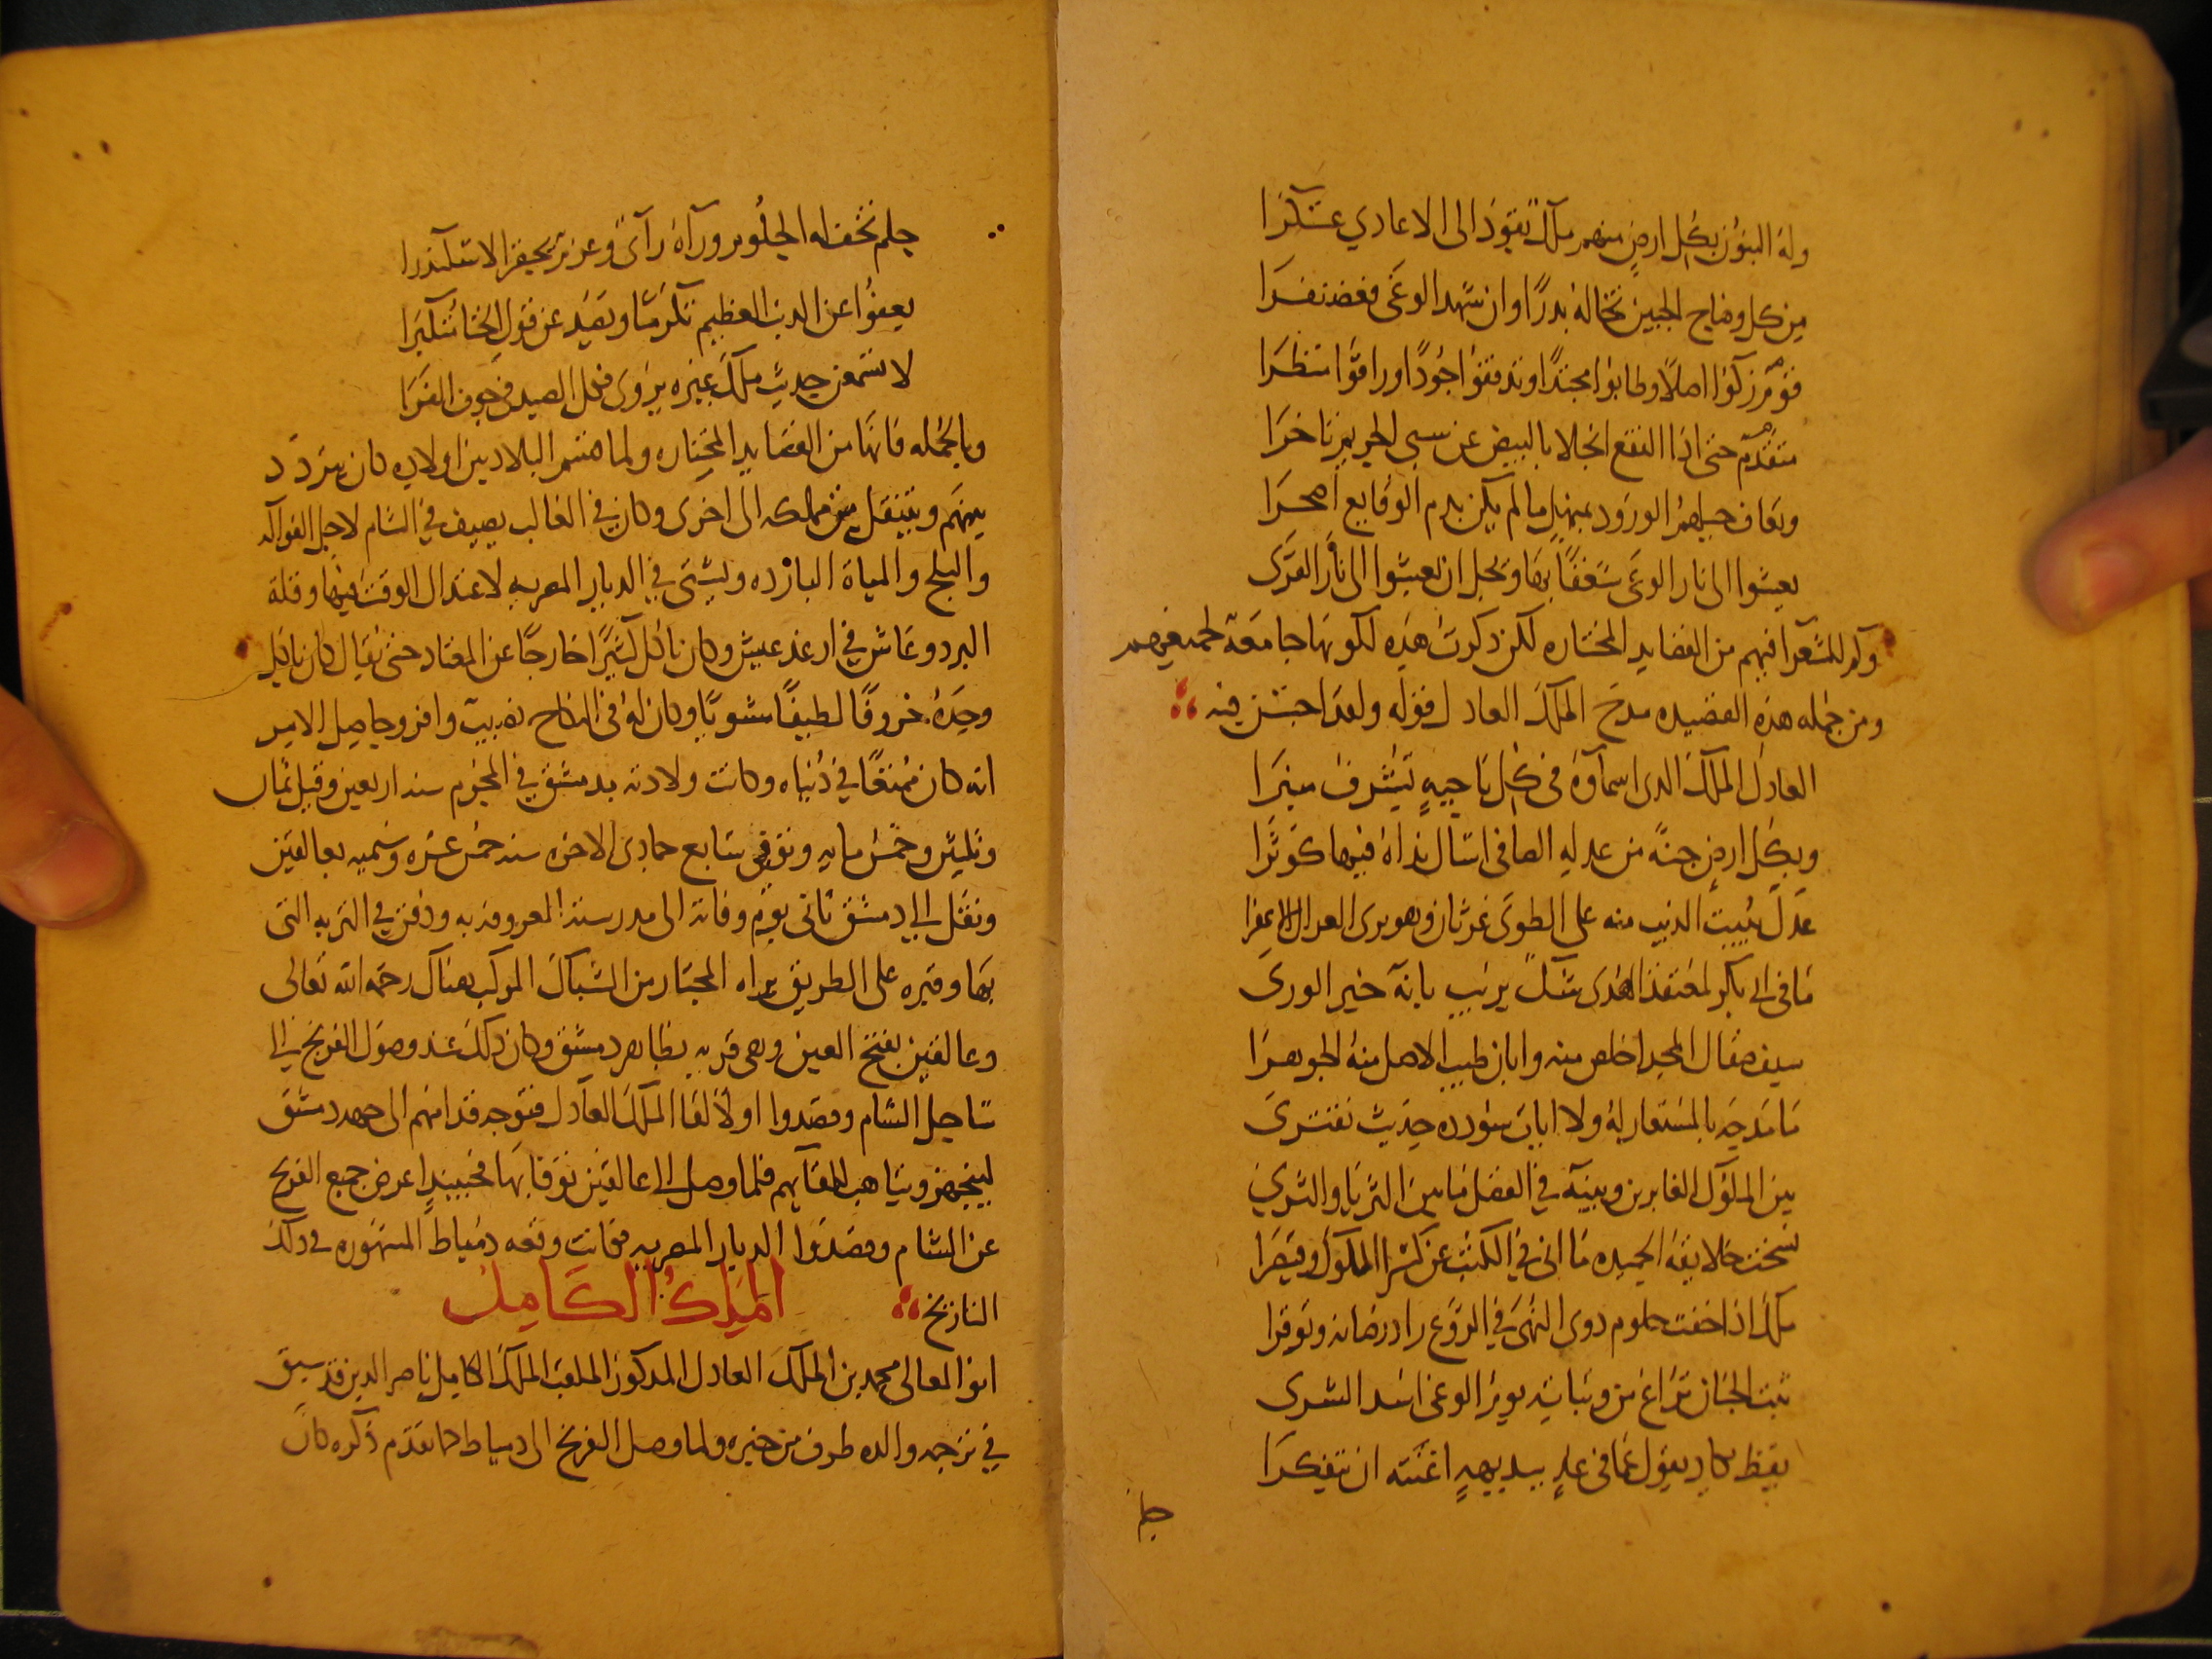 وله البنون بكل ارض منهم ملك يقود الى الاعادي عسكرا
من كل وضاح الجبين تخاله بدرا وان شهد الوغى فغضنفرا
قوم زكوا اصلا وطابوا محتدا وتدفقوا جودا وراقوا منظرا
متقدم حتى اذا النقع انجلا بالبيض عن سبي الحريم تاخرا
وتعاف خيلهم الورود بمنهل ما لم يكن بدم الوقايع احمرا
يعشوا الى نار الوغى شغفا بها ويجل ان يعشوا الى نار القرى
وكم للشعرا فيهم من القصايد المختاره لكن ذكرت هذه لكونها جامعة لجميعهم
ومن جمله هذه القصيده مدح الملك العادل قوله ولقد احسن فيه
العادل الملك الذى اسماوه فى كل ناحية تشرف منبرا
وبكل ارض جنة من عدله الصافى اسال نداه فيها كوثرا
عدل يبيت الذيب منه على الطوى غرثان وهو يرى الغزال الاعفرا
ما فى ابي بكر لمعتقد الهدى شك يريب بانه خير الورى
سيف صقال المجد اخلص متنه وابان طيب الاصل منه الجوهرا
ما مدحه بالمستعار له ولا ايات سودده حديث يفترى
بين الملوك الغابرين وبينه في الفضل ما بين الثريا والثرى
نسخت خلايقه الحميده ما اتى في الكتب عن كسرا الملوك وقيصرا
ملك اذا خفت حلوم ذوى النهى في الروع زاد رزانه وتوقرا
ثبت الجنان تراع من وثباته يوم الوغى اسد الشرى
يقظ يكاد يقول عما فى غد ببديهة اغنته ان يتفكرا
حلم
حلم تخف له الحلوم ورآه رآى وعزم يحقر الاسكندرا
يعفوا عن الذنب العظيم تكرما ويصد عن قول الخنا متكبرا
لا تسمعن حديث ملك غيره يروى فكل الصيد فى جوف الفرا
وبالجمله فانها من القصايد المختاره ولما قسم البلاد بين اولاده كان يتردد
بينهم وينتقل من مملكه الى اخرى وكان في الغالب يصيف في الشام لاجل الفواكه
والثلج والمياة البارده ويشتى في الديار المصريه لاعتدال الوقت فيها وقلة
البرد وعاش في ارغد عيش وكان ياكل كثيرا خارجا عن المعتاد حتى يقال كان ياكل
وحده خروفا لطيفا مشويا وكان له فى النكاح نصيب وافر وحاصل الامر
انه كان ممتعا في دنياه وكانت ولادته بدمشق في المحرم سنه اربعين وقيل ثمان
وثلثين وخمس مايه وتوفى سابع جمادى الاخره سنه خمس عشره وستميه بعالقين
ونقل الى دمشق ثانى يوم وفاته الى مدرسته المعروفه به ودفن في التربه التى
بها وقبره على الطريق يراه المجتاز من الشباك المركب هناك رحمه الله تعالى
وعالقين بفتح العين وهى قريه بظاهر دمشق وكان ذلك عند وصول الفرنج الى
ساحل الشام وقصدوا اولا لقا الملك العادل فتوجه قدامهم الى جهه دمشق
ليتجهز ويتاهب للقايهم فلما وصل الى عالقين توفا بها فحينيذ اعرض جميع الفرنج
عن الشام وقصدوا الديار المصريه فكانت وقعه دمياط المشهوره في ذلك
التاريخ الملك الكامل
ابو المعالى محمد بن الملك العادل المذكور الملقب الملك الكامل ناصر الدين قد سبق
في ترجمه والده طرف من خبره ولما وصل الفرنج الى دمياط كما تقدم ذكره كان